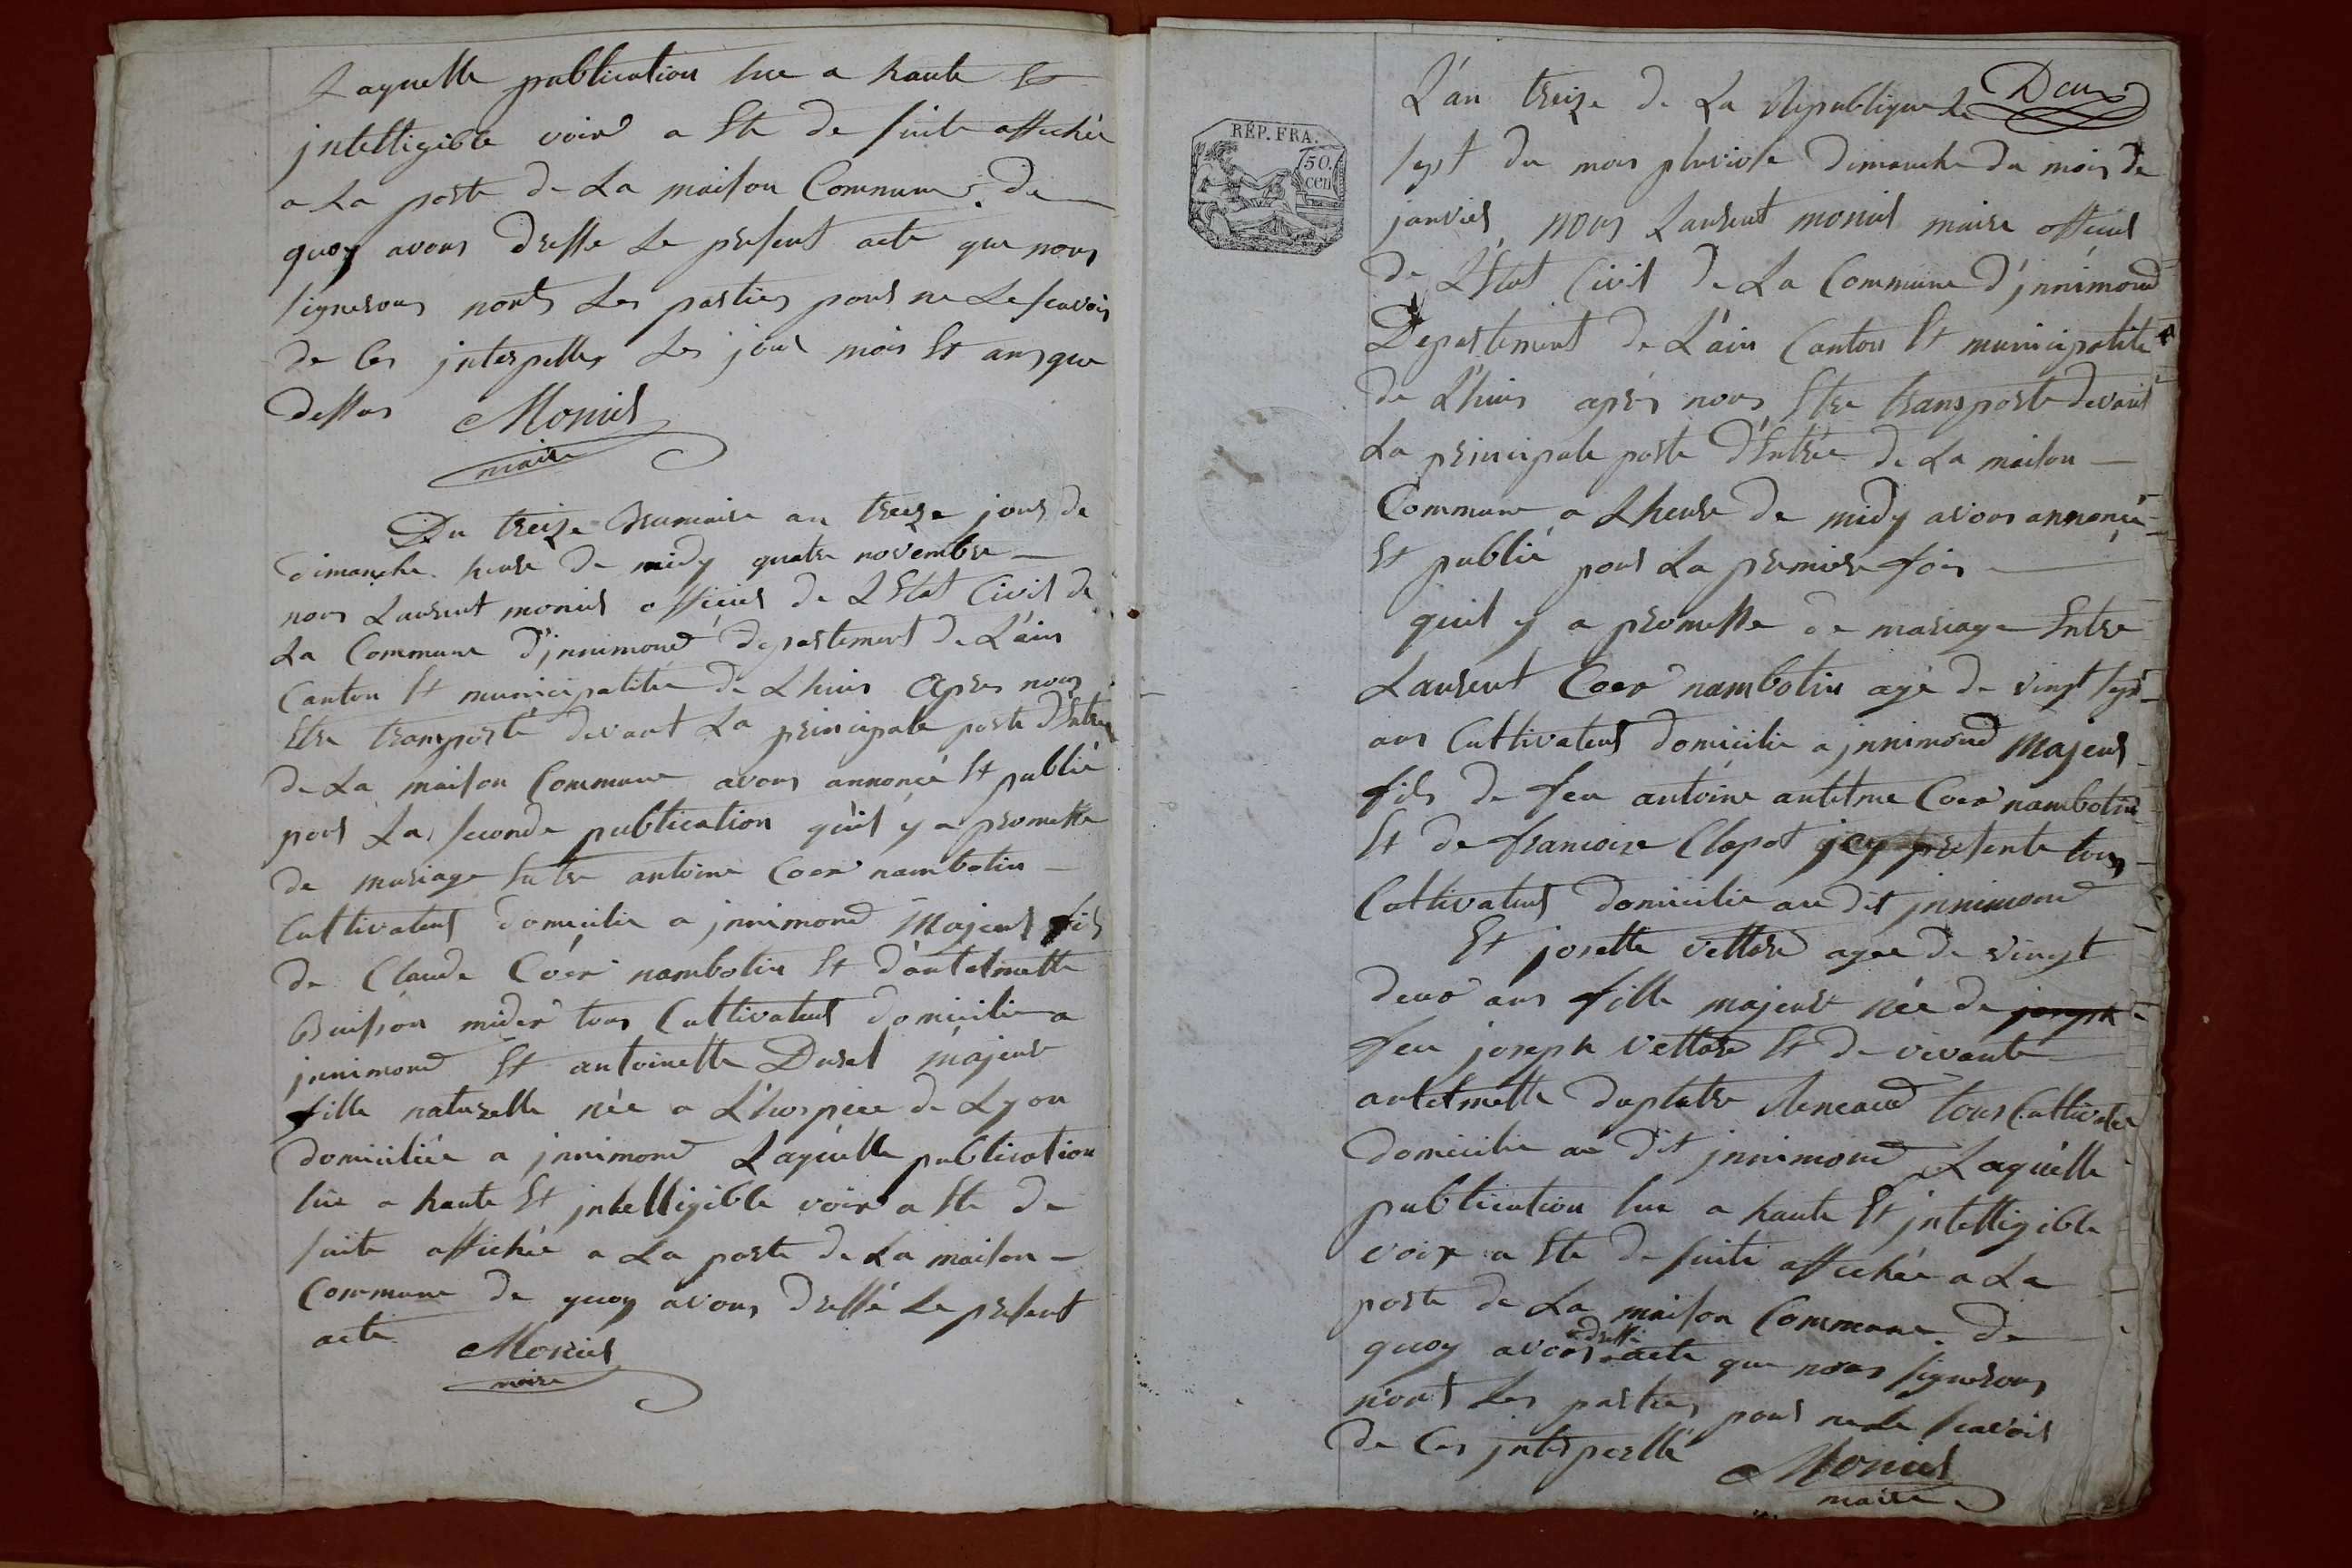 Laquelle publication lue a haute Et
jntelligible voix a Ete de suite affichée
a La porte de La maison Commune. De
quoy avons dresse Le present acte que nous
signerons nonts Les parties pour ne Le scavoir
de Ces jnterpelles Les jour mois Et ans que
dessus Monier
maire
Du treize Brumaire an treize jour de
dimanche heure de midy quatre novembre
nous Laurent monier officier de L'Etat Civil de
La Commune d'jnnimond departement de L'ain
Canton Et municipalitée de Lhuis Apres nous
Etre transporté devant La principale porte d'Entree
de La maison Commune avons annoncé Et publié
pour La seconde publication qu'il y a promesse
de mariage Entre antoine Coer nambotin
Cultivateur domicilie a jnnimond Majeur fils
de Claude Coer nambotin Et d'antelmette
Buisson midex tous Cultivateur domicilie a
jnnimond Et antoinette Durel majeure
fille naturelle née a L'hospice de Lyon
domiciliée a jnnimond Laquelle publication
lue a haute Et jntelligible voix a Ete de
suite affichée a La porte de La maison
Commune de quoy avons dressé Le present
acte Monier
maire
Deux
L'an treize de La Republique Le
RÉP. FRA.
50.
cen
sept du mois pluviose dimanche du mois de
janvier nous Laurent monier maire officier
de L'Etat Civil de La Commune d'jnnimond
Departement de L'ain Canton Et municipalite
de Lhuis aprés nous Etre transporte devant
La principale porte d'Entrée de La maison
Commune a Lheure de midy avons annoncée
Et publié pour La premiere fois
quil y a promesse de mariage Entre
Laurent Coer nambotin agé de vingt sept
ans Cultivateur domicilie a jnnimond Majeur
fils de feu antoine antelme Coer nambotin
Et de francoise Clapot jcy presente tous
Cultivateur domicilie au dit jnnimond
Et josette vettard agee de vingt
deux ans fille majeure née de joseph
feu joseph vettard Et de vivante
antelmette duplatre Reneaud tous Cultivateur
domicilie au dit jnnimond Laquelle
publication lue a haute Et jntelligible
voix a Ete de suite affichée a La
porte de La maison Commune. De
dressé
quoy avons acte que nous signerons
n'ont Les parties pour ne Le scavoir
de Ces jnterpellé
Monier
maire